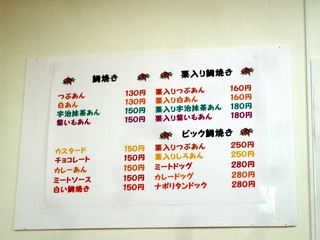 鯛焼き
つぶあん 130円
白あん 130円
宇治抹茶あん 150円
紫いもあん 150円
カスタード 150円
チョコレート 150円
カレーあん 150円
ミートソース 150円
白い鯛焼き 150円
栗入り鯛焼き
栗入りつぶあん 160円
栗入り白あん 160円
栗入り宇治抹茶あん 180円
栗入り紫いもあん 180円
ビック鯛焼き
栗入りつぶあん 250円
栗入りしろあん 250円
ミートドッグ 280円
カレードッグ 280円
ナポリタンドック 280円